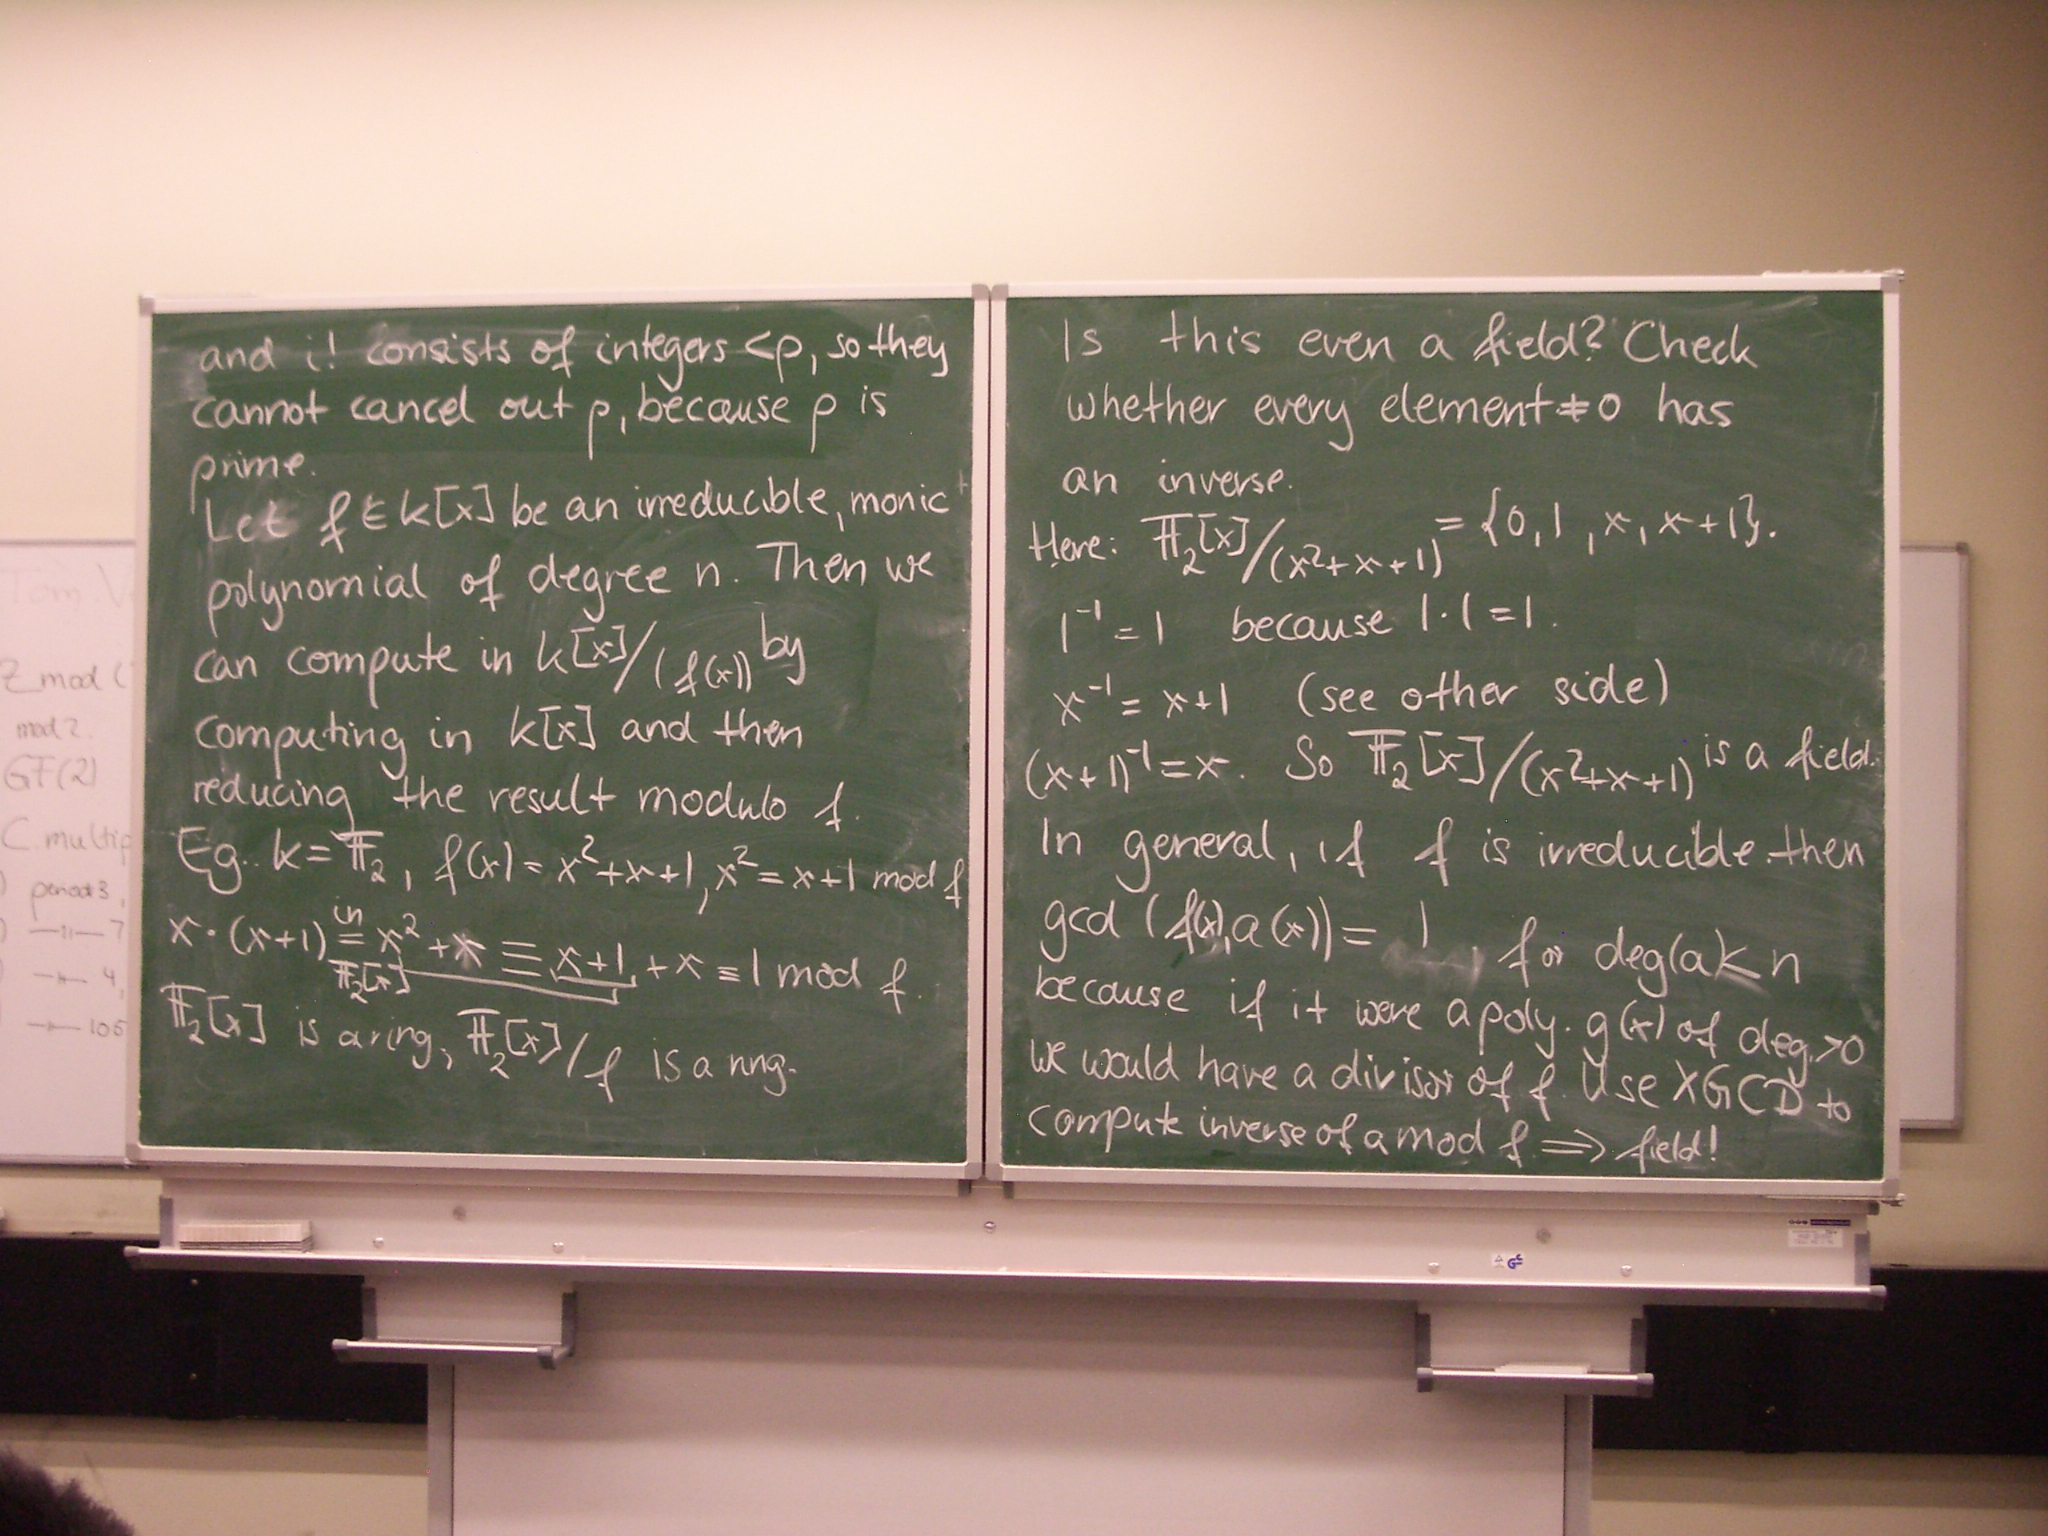 and i! consists of integers <p, so they
cannot cancel out p, because p is
prime.
Let f ∈ k[x] be an irreducible, monic
polynomial of degree n. Then we
can compute in k[x]/(f(x)) by
computing in k[x] and then
reducing the result modulo f.
Eg. k=𝔽₂, f(x)=x²+x+1, x²=x+1 mod f
x·(x+1) = x²+x ≡ x+1 + x ≡ 1 mod f.
in 𝔽₂[x]
𝔽₂[x] is a ring, 𝔽₂[x]/f is a ring.
Is this even a field? Check
whether every element ≠0 has
an inverse.
Here: 𝔽₂[x]/(x²+x+1) = {0, 1, x, x+1}.
1⁻¹=1 because 1·1=1.
x⁻¹=x+1 (see other side)
(x+1)⁻¹=x. So 𝔽₂[x]/(x²+x+1) is a field.
In general, if f is irreducible then
gcd (f(x),a(x))= 1, for deg(a)<n
because if it were a poly. g(x) of deg.>0
we would have a divisor of f. Use XGCD to
compute inverse of a mod f ⟹ field!
Tom.
Z mod (
mod 2.
GF(2)
C. multip
) period 3,
7
4,
105